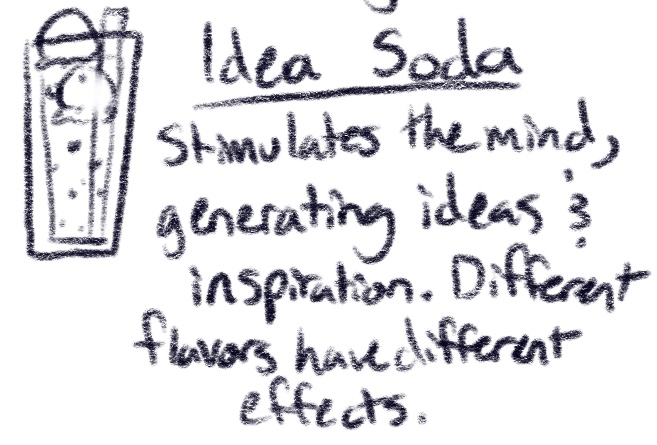 Idea Soda
Stimulates the mind,
generating ideas &
inspiration. Different
flavors have different
effects.